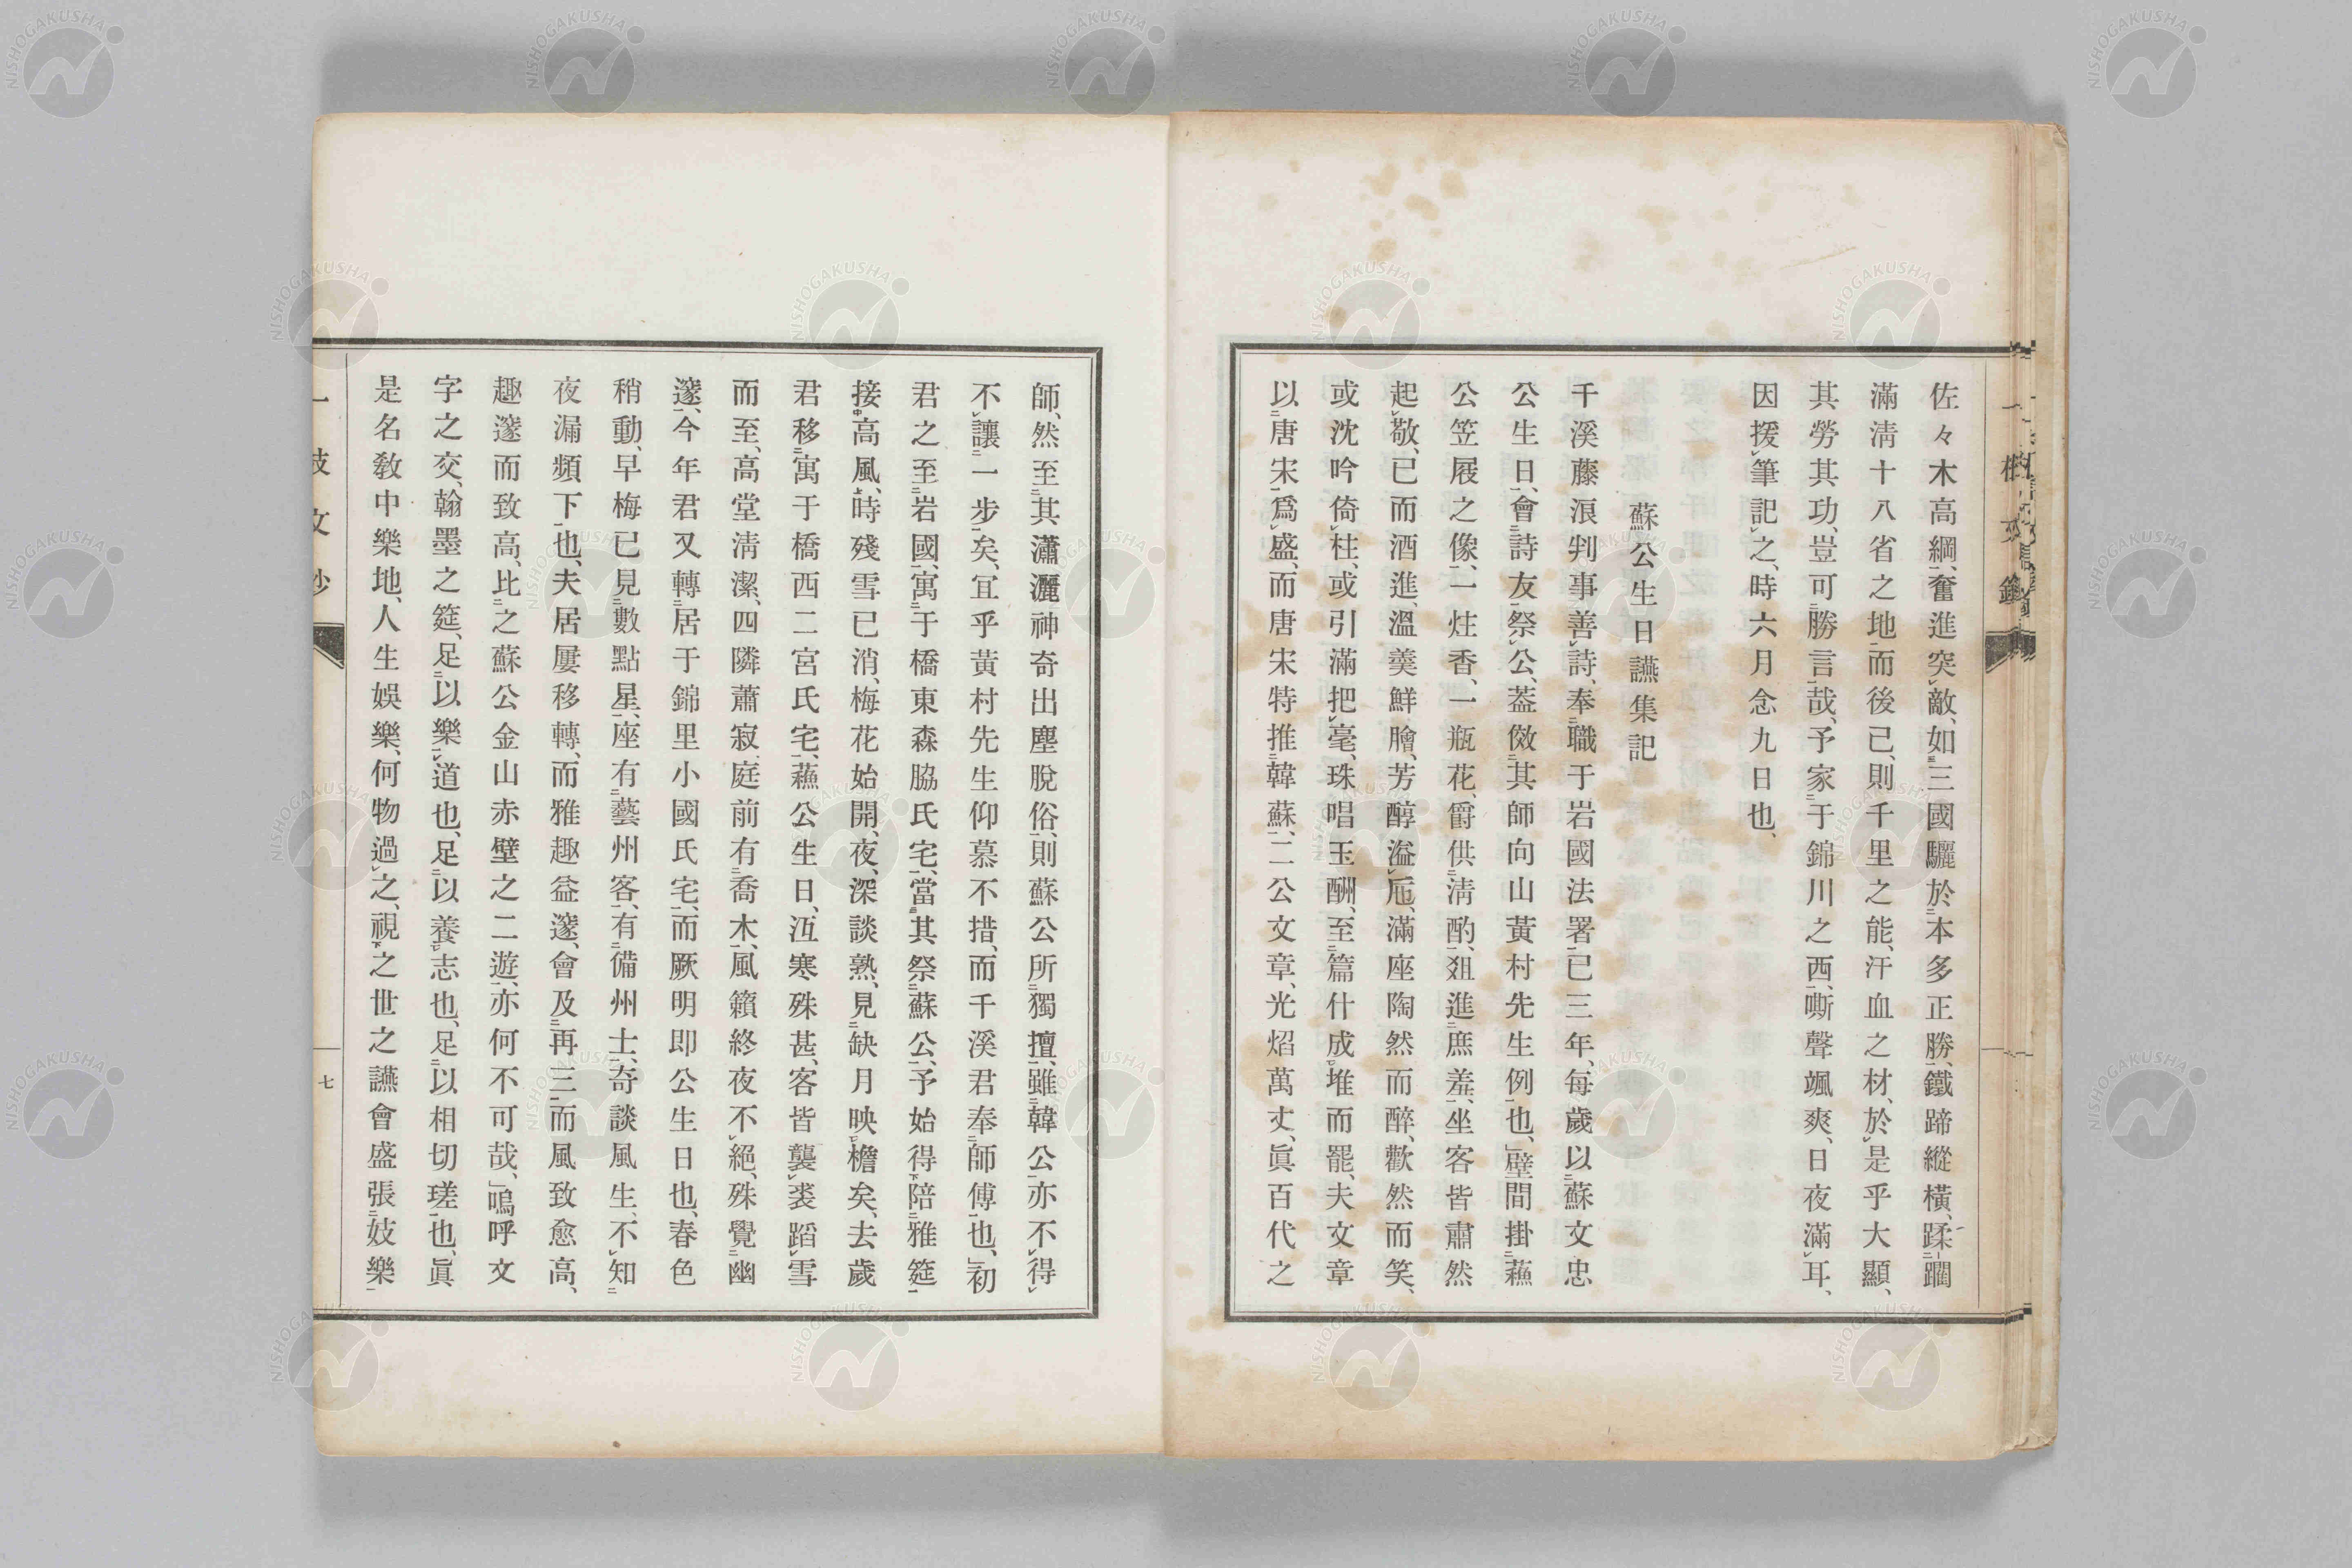 佐々木高綱、奮進突敵、如三國驪於本多正勝、鐵蹄縱橫、蹂躙
滿淸十八省之地、而後已、則千里之能、汗血之材、於是乎大顯、
其勞其功、豈可勝言哉、予家于錦川之西、嘶聲颯爽、日夜滿耳、
因援筆記之、時六月念九日也、
蘇公生日讌集記
千溪藤浪判事善詩、奉職于岩國法署、已三年、每歲以蘇文忠
公生日、會詩友祭公、葢傚其師向山黃村先生例也、」壁間掛蘓
公笠屐之像、一炷香、一瓶花、爵供淸酌、爼進庶羞、坐客皆肅然
起敬、已而酒進、溫羹鮮膾、芳醇溢卮、滿座陶然而醉、歡然而笑、
或沈吟倚柱、或引滿把毫、珠唱玉酬、至篇什成堆而罷、夫文章
以唐宋爲盛、而唐宋特推韓蘇、二公文章、光焰萬丈、眞百代之
師、然至其瀟灑神奇出塵脫俗、則蘇公所獨擅、雖韓公亦不得
不讓一步矣、宜乎黃村先生仰慕不措、而千溪君奉師傅也、」初
君之至岩國、寓于橋東森脇氏宅、當其祭蘇公、予始得陪雅筵
接高風、時殘雪已消、梅花始開、夜深談熟、見缺月映檐矣、去歲
君移寓于橋西二宮氏宅、蘓公生日、冱寒殊甚、客皆襲裘蹈雪
而至、高堂淸潔、四隣蕭寂、庭前有喬木、風籟終夜不絕、殊覺幽
邃、今年君又轉居于錦里小國氏宅、而厥明即公生日也、春色
稍動、早梅已見數點星、座有藝州客、有備州士、奇談風生、不知
夜漏頻下也、夫居屢移轉、而雅趣益邃、會及再三而風致愈高、
趣邃而致高、比之蘇公金山赤壁之二遊、亦何不可哉、」嗚呼文
字之交、翰墨之筵、足以樂道也、足以養志也、足以相切瑳也、眞
是名敎中樂地、人生娛樂、何物過之、視之世之讌會盛張妓樂
七